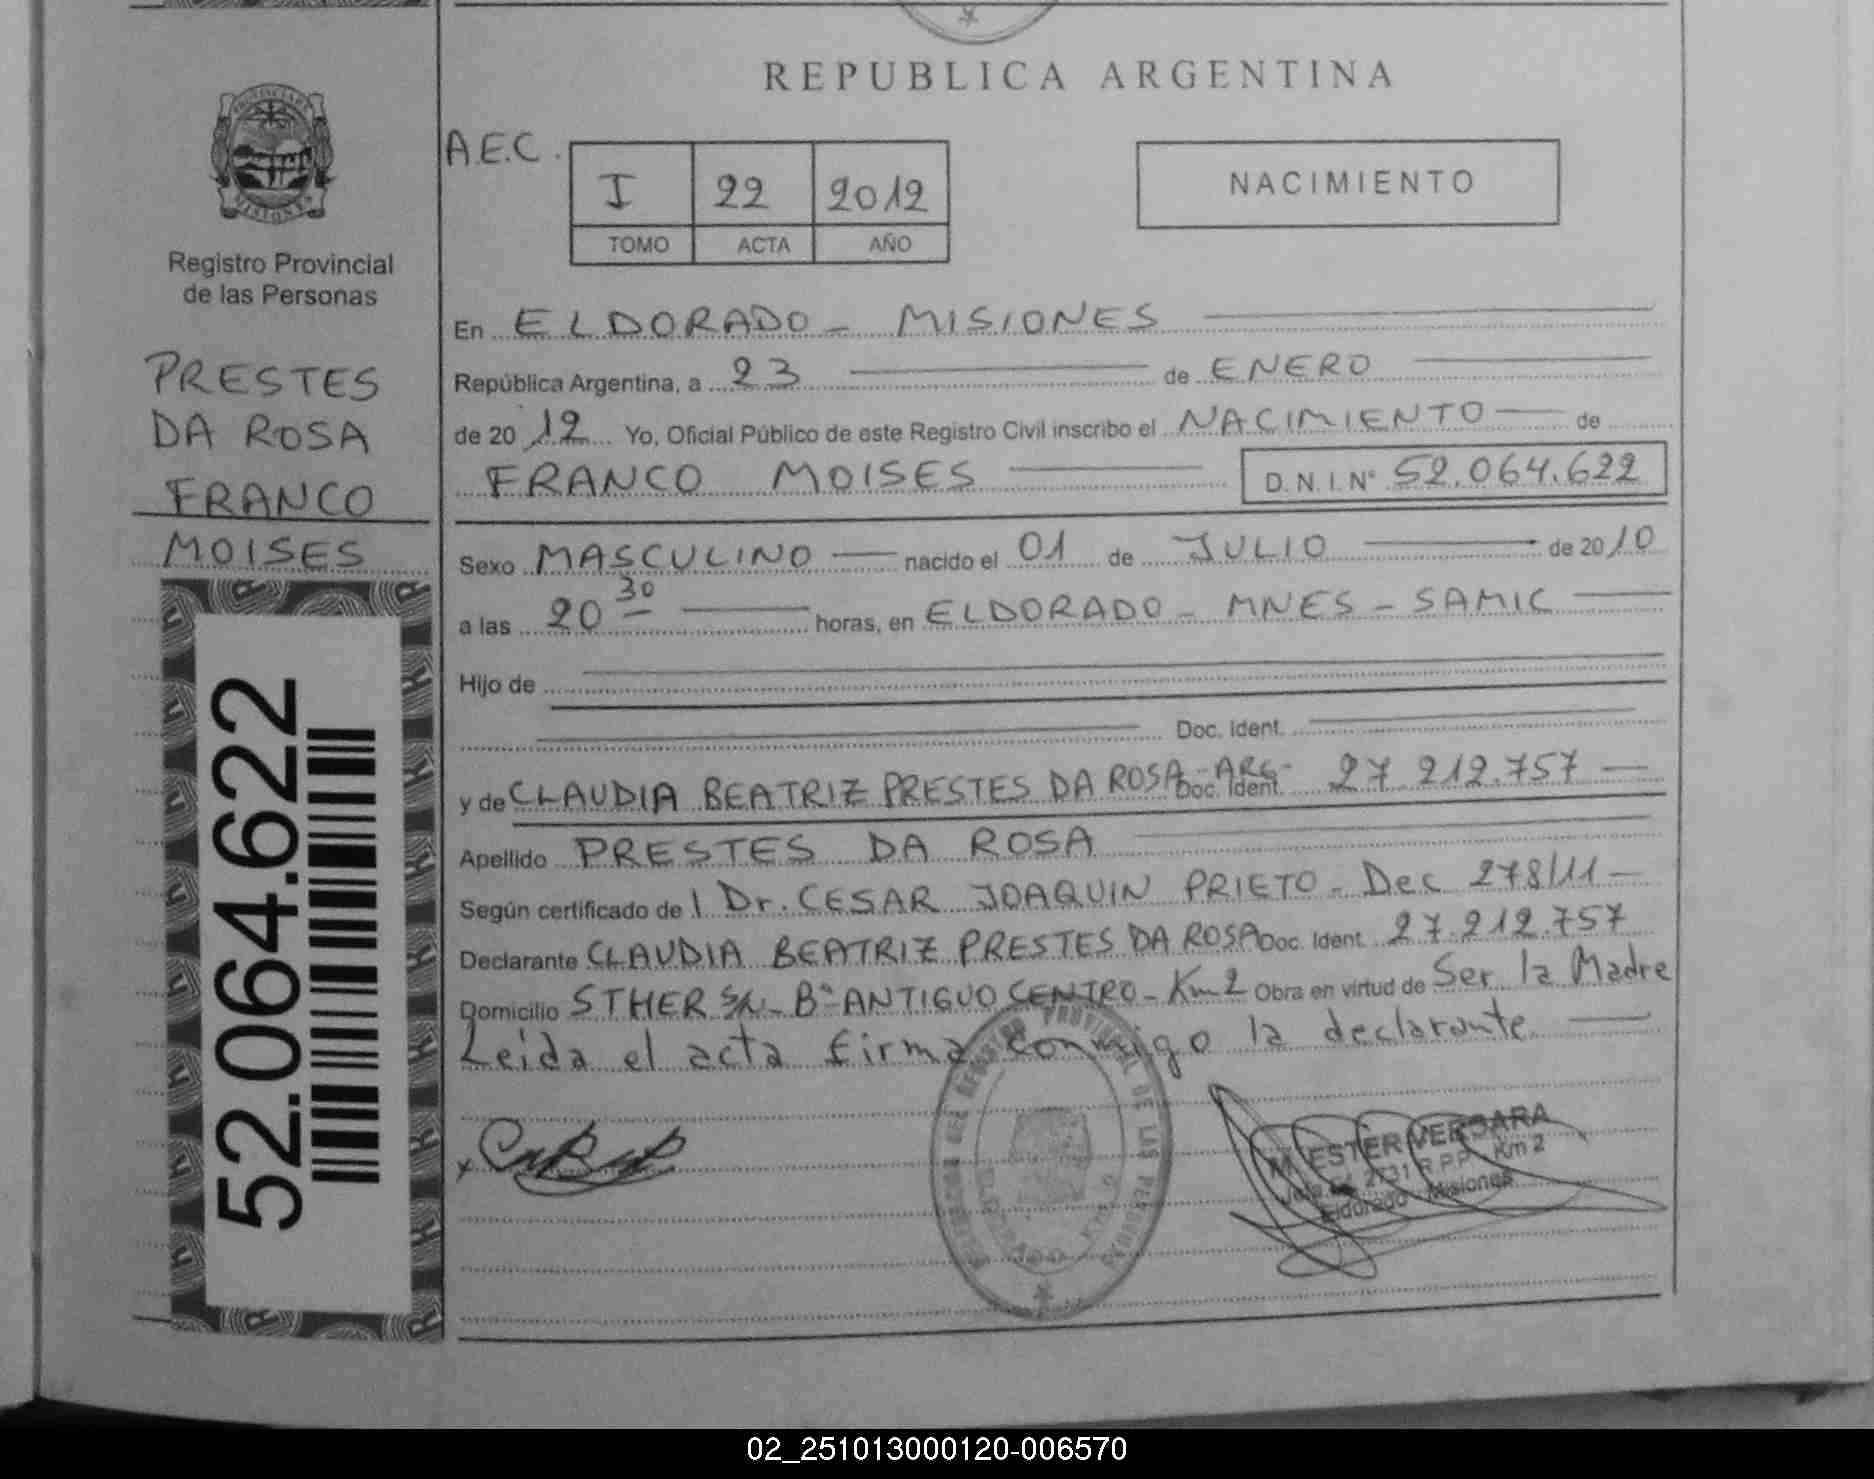 REPUBLICA ARGENTINA
PROVINCIA DE
MISIONES
Registro Provincial
de las Personas
PRESTES
DA ROSA
FRANCO
MOISES
52.064.622
A.E.C.
I 22 2012
TOMO ACTA AÑO
NACIMIENTO
En ELDORADO - MISIONES
República Argentina, a 23 de ENERO
de 2012 Yo, Oficial Público de este Registro Civil inscribo el NACIMIENTO de
FRANCO MOISES D.N.I.N° 52.064.622
Sexo MASCULINO nacido el 01 de JULIO de 2010
a las 20 30 horas, en ELDORADO - MNES - SAMIC
Hijo de
Doc. Ident.
y de CLAUDIA BEATRIZ PRESTES DA ROSA - ARG - Doc. Ident. 27.212.757
Apellido PRESTES DA ROSA
Según certificado de l Dr. CESAR JOAQUIN PRIETO - Dec 278/11
Declarante CLAUDIA BEATRIZ PRESTES DA ROSA Doc. Ident. 27.212.757
Domicilio STHER S/N - B° ANTIGUO CENTRO - Km 2 Obra en virtud de Ser la Madre
Leida el acta firma conmigo la declarante
M. ESTER VERGARA
2731 R.P.P. Km 2
Eldorado - Misiones
02_251013000120-006570